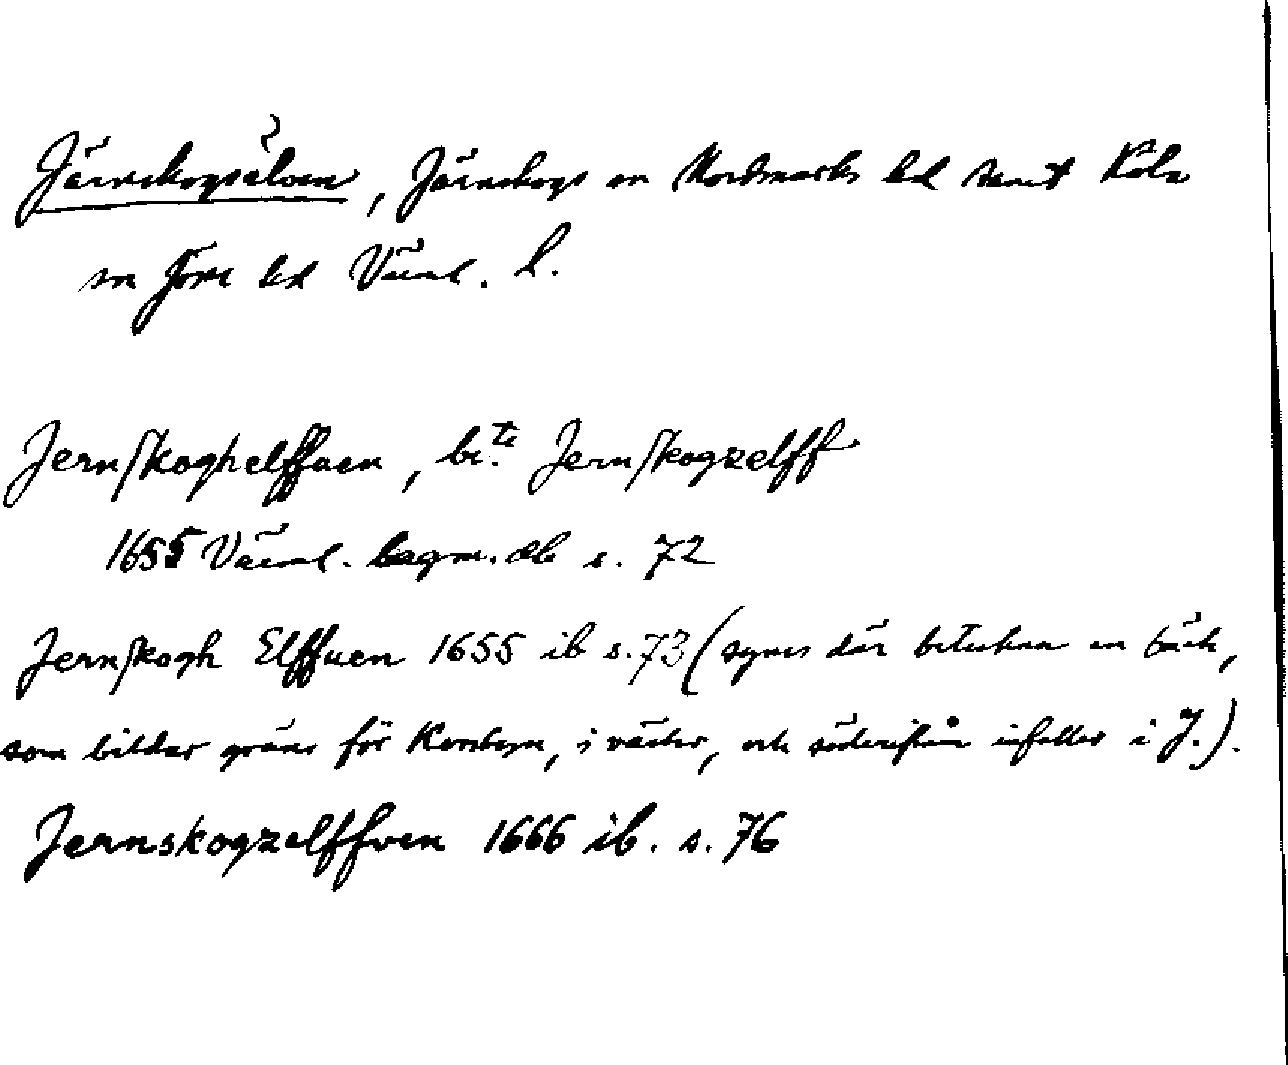 Järnskogsälven, Järnskogs sn Nordmarks hd samt Köla
sn Jösse hd Värml. l.
Jernſkoghelffuen, bi.te Jernſkogzelff
1655 Värml. lagm. db s. 72
Jernſkogh Elffuen 1655 ib s. 73 (synes där beteckna en bäck,
som bildar gräns för Korsbyn, i väster, och söderifrån infaller i J.).
Jernskogzelffven 1666 ib. s. 76